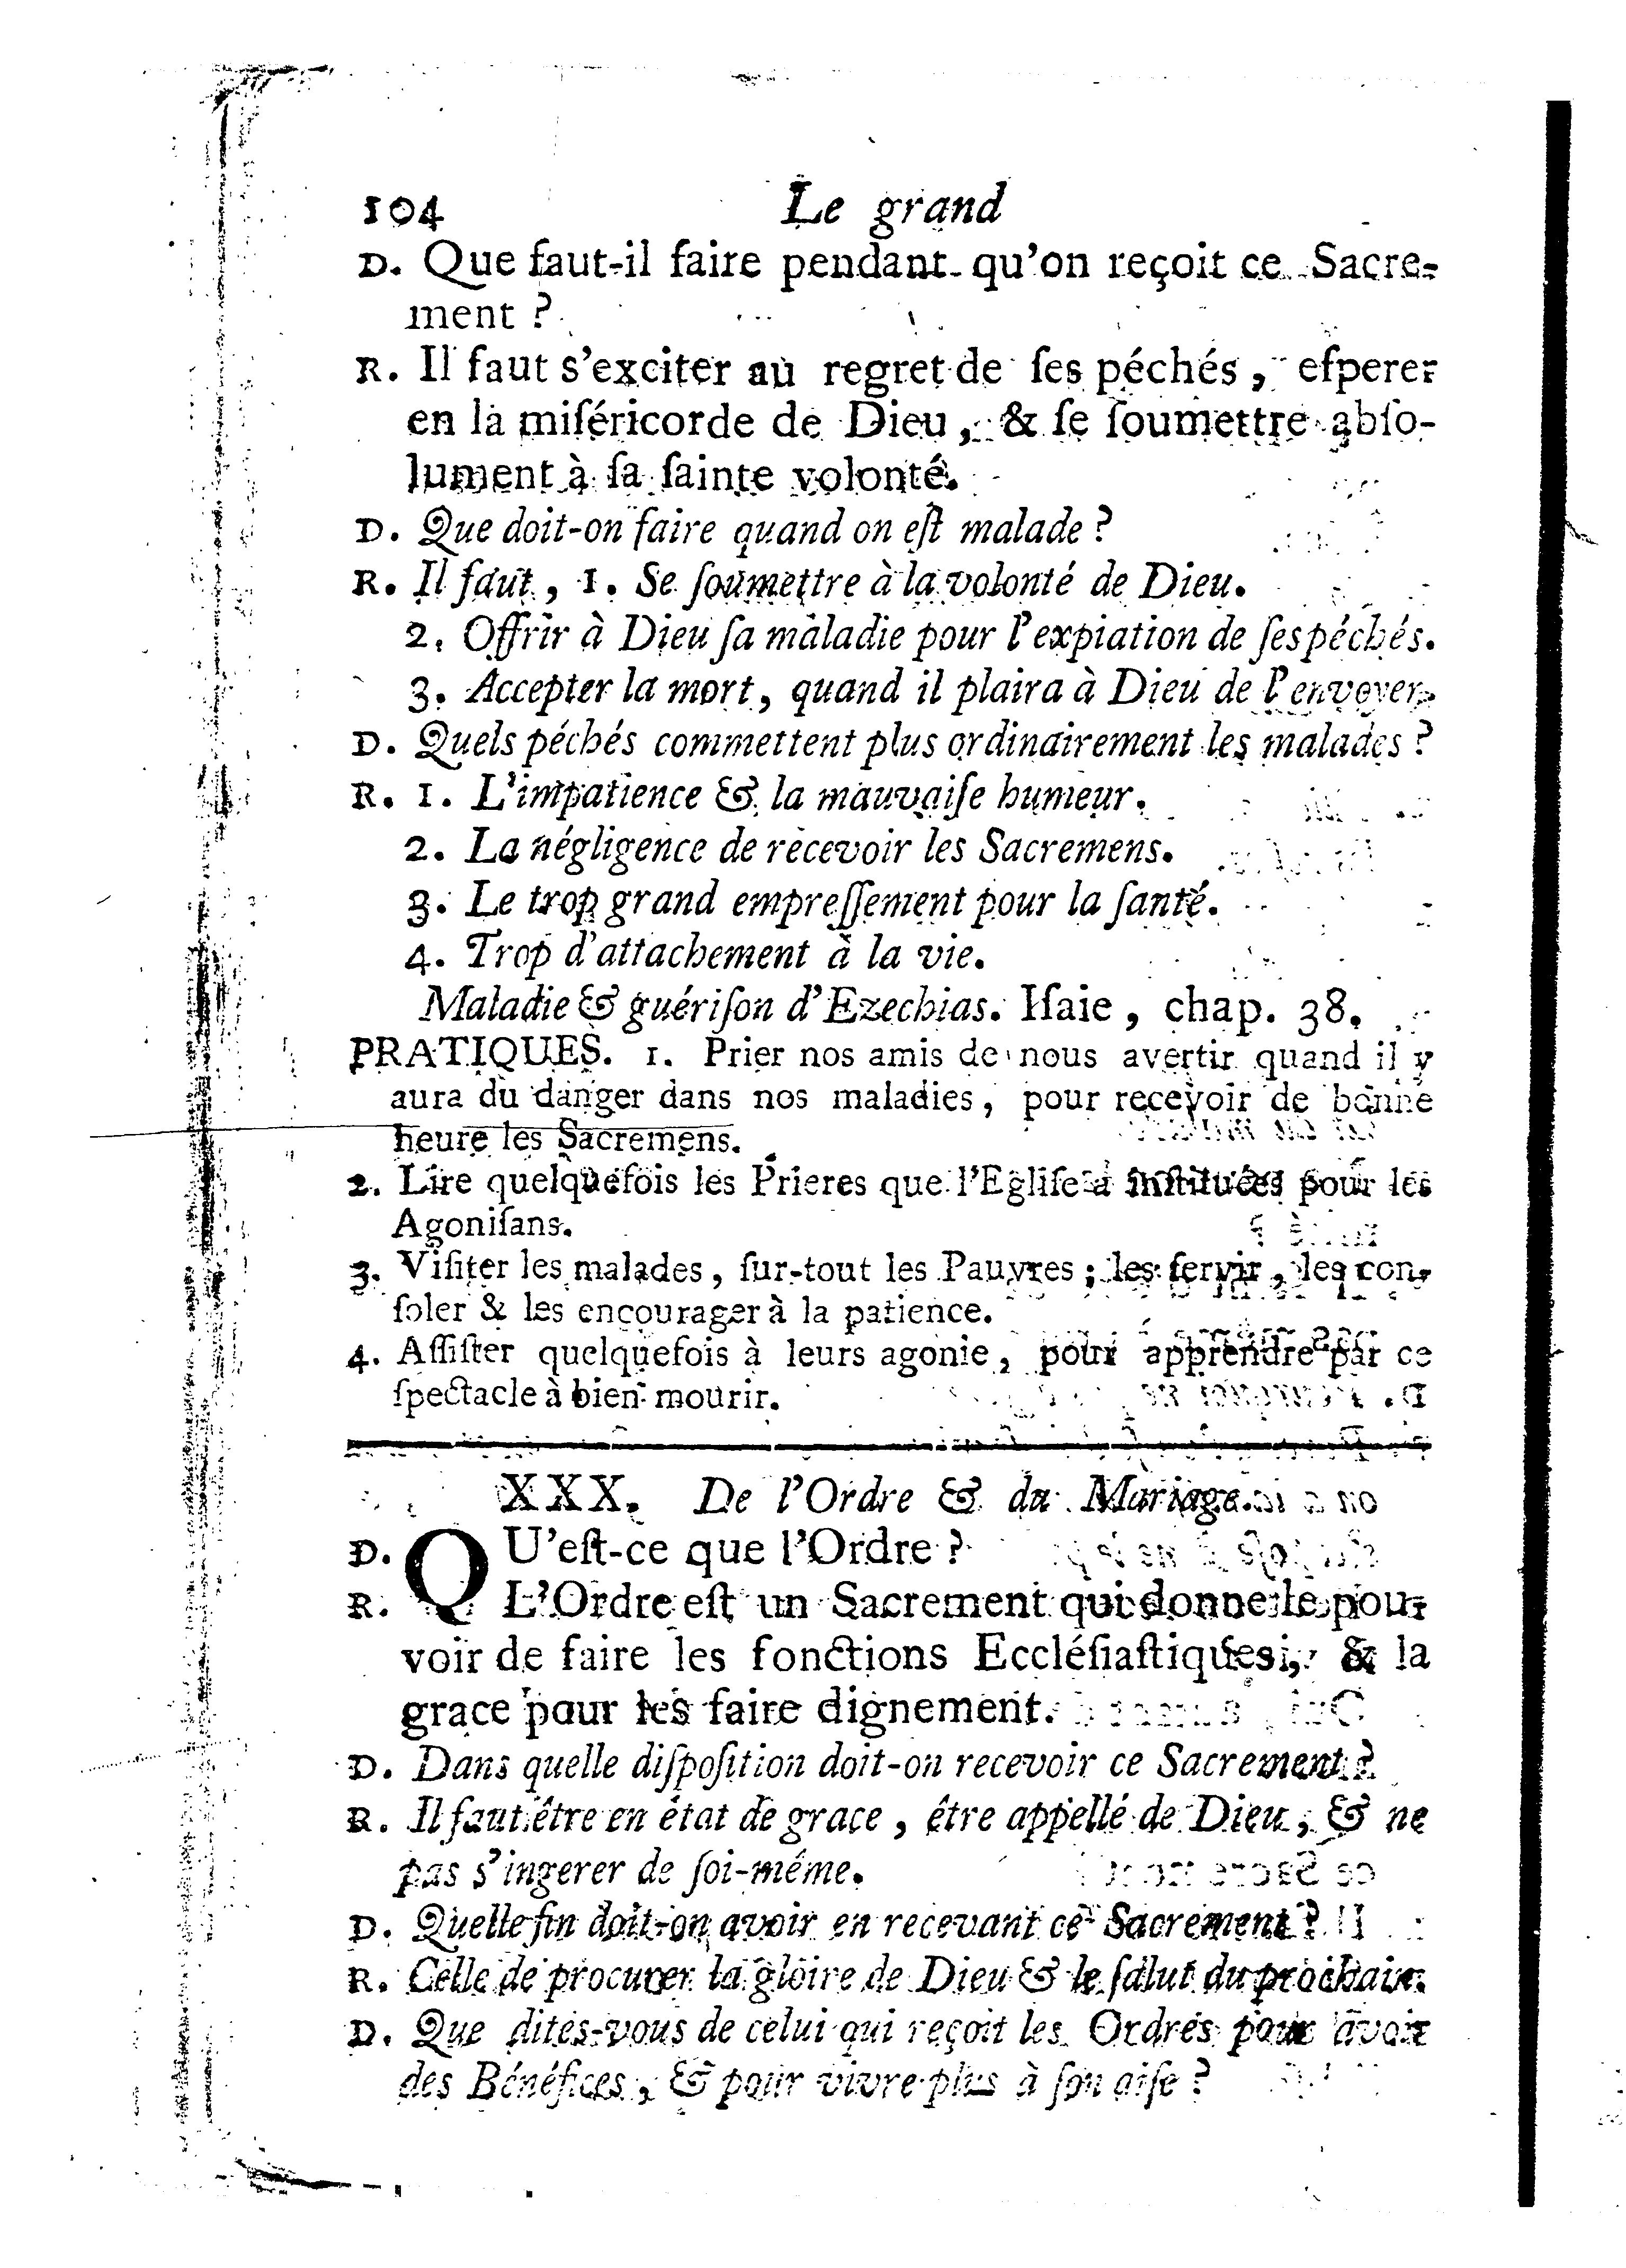 104 Le grand
D. Que faut-il faire pendant qu'on reçoit ce Sacre-
ment ?
R. Il faut s'exciter au regret de ſes péchés, eſperer
en la miſéricorde de Dieu, & ſe ſoumettre abſo-
lument à ſa ſainte volonté.
D. Que doit-on faire quand on eſt malade ?
R. Il faut, 1. Se ſoumettre à la volonté de Dieu.
2. Offrir à Dieu ſa maladie pour l'expiation de ſes péchés.
3. Accepter la mort, quand il plaira à Dieu de l'envoyer.
D. Quels péchés commettent plus ordinairement les malades ?
R. 1. L'impatience & la mauvaiſe humeur.
2. La négligence de recevoir les Sacremens.
3. Le trop grand empreſſement pour la ſanté.
4. Trop d'attachement à la vie.
Maladie & guériſon d'Ezechias. Iſaie, chap. 38.
PRATIQUES. 1. Prier nos amis de nous avertir quand il y
aura du danger dans nos maladies, pour recevoir de bonne
heure les Sacremens.
2. Lire quelquefois les Prieres que l'Egliſe a inſtituées pour les
Agoniſans.
3. Viſiter les malades, ſur-tout les Pauvres ; les ſervir, les con-
ſoler & les encourager à la patience.
4. Aſſiſter quelquefois à leurs agonie, pour apprendre par ce
ſpectacle à bien mourir.
XXX. De l'Ordre & du Mariage.
D. QU'eſt-ce que l'Ordre ?
R. L'Ordre eſt un Sacrement qui donne le pou-
voir de faire les fonctions Eccléſiaſtiques, & la
grace pour les faire dignement.
D. Dans quelle diſpoſition doit-on recevoir ce Sacrement ?
R. Il faut être en état de grace, être appellé de Dieu, & ne
pas s'ingerer de ſoi-même.
D. Quelle fin doit-on avoir en recevant ce Sacrement ?
R. Celle de procurer la gloire de Dieu & le ſalut du prochain.
D. Que dites-vous de celui qui reçoit les Ordres pour avoir
des Bénéfices, & pour vivre plus à ſon aiſe ?